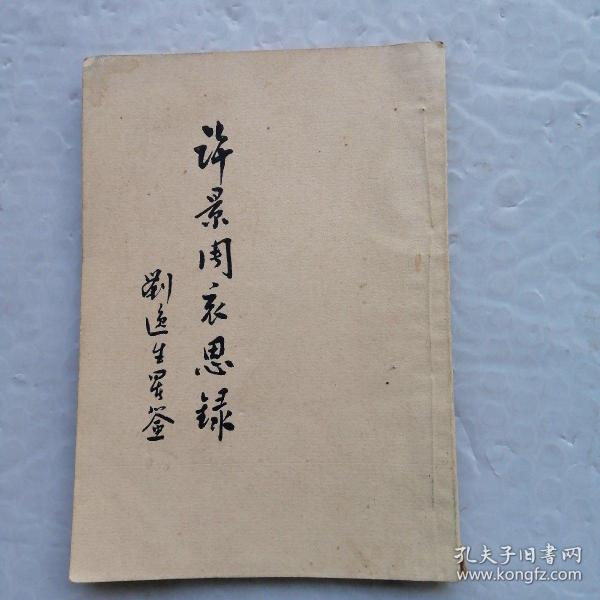 許景周哀思録
劉逸生署簽
孔夫子旧书网
www.kongfz.com